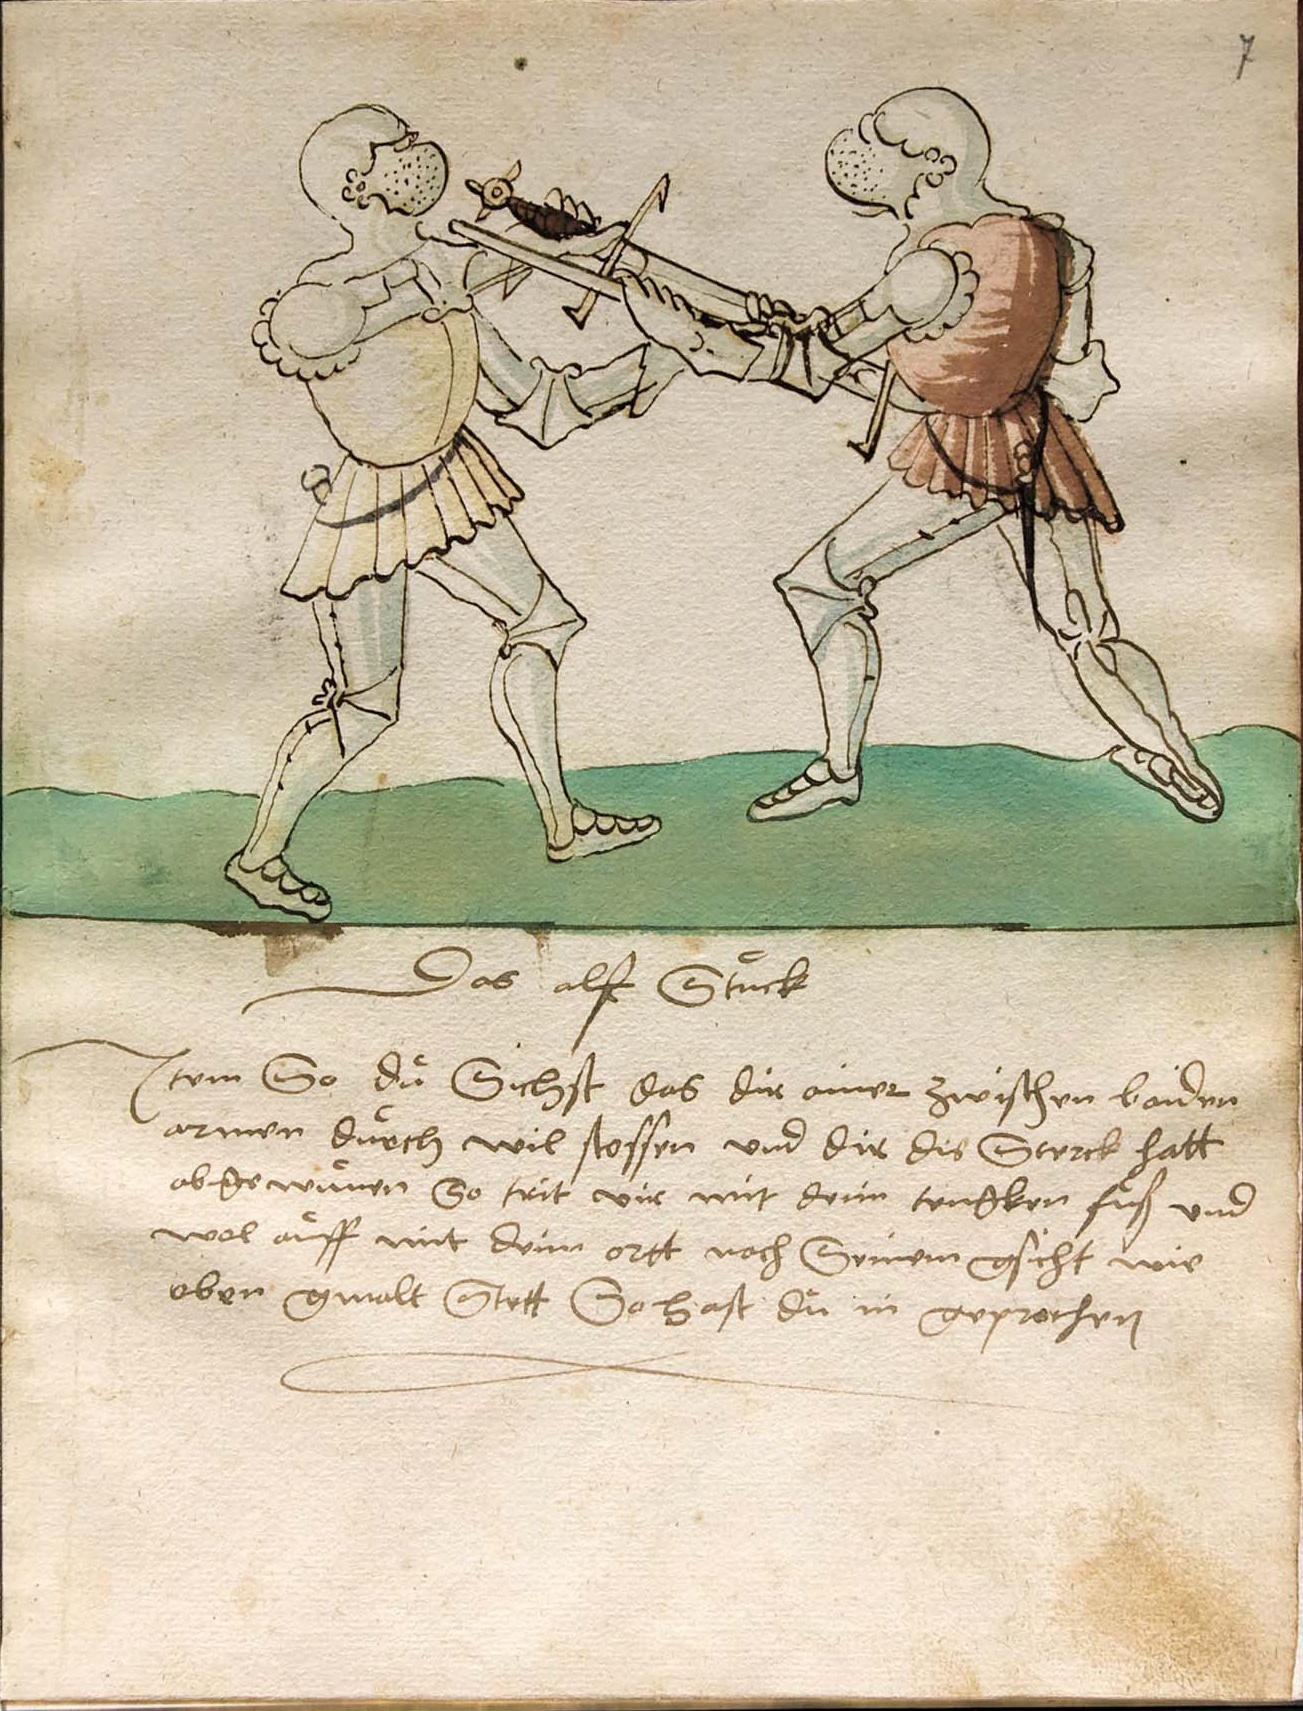 7
Das alft Stuͤck
Item So duͦ Sichst das dir ainer zwischen baiden
armen duͦrch wil stossen vnd dir die Sterck hatt
abgewuͦnen So trit vir mit deim tengken fuͦß vnd
wol auͦff mit deim ortt nach Seinem gsicht wie
oben gmalt Stett So hast duͦ in geprochen